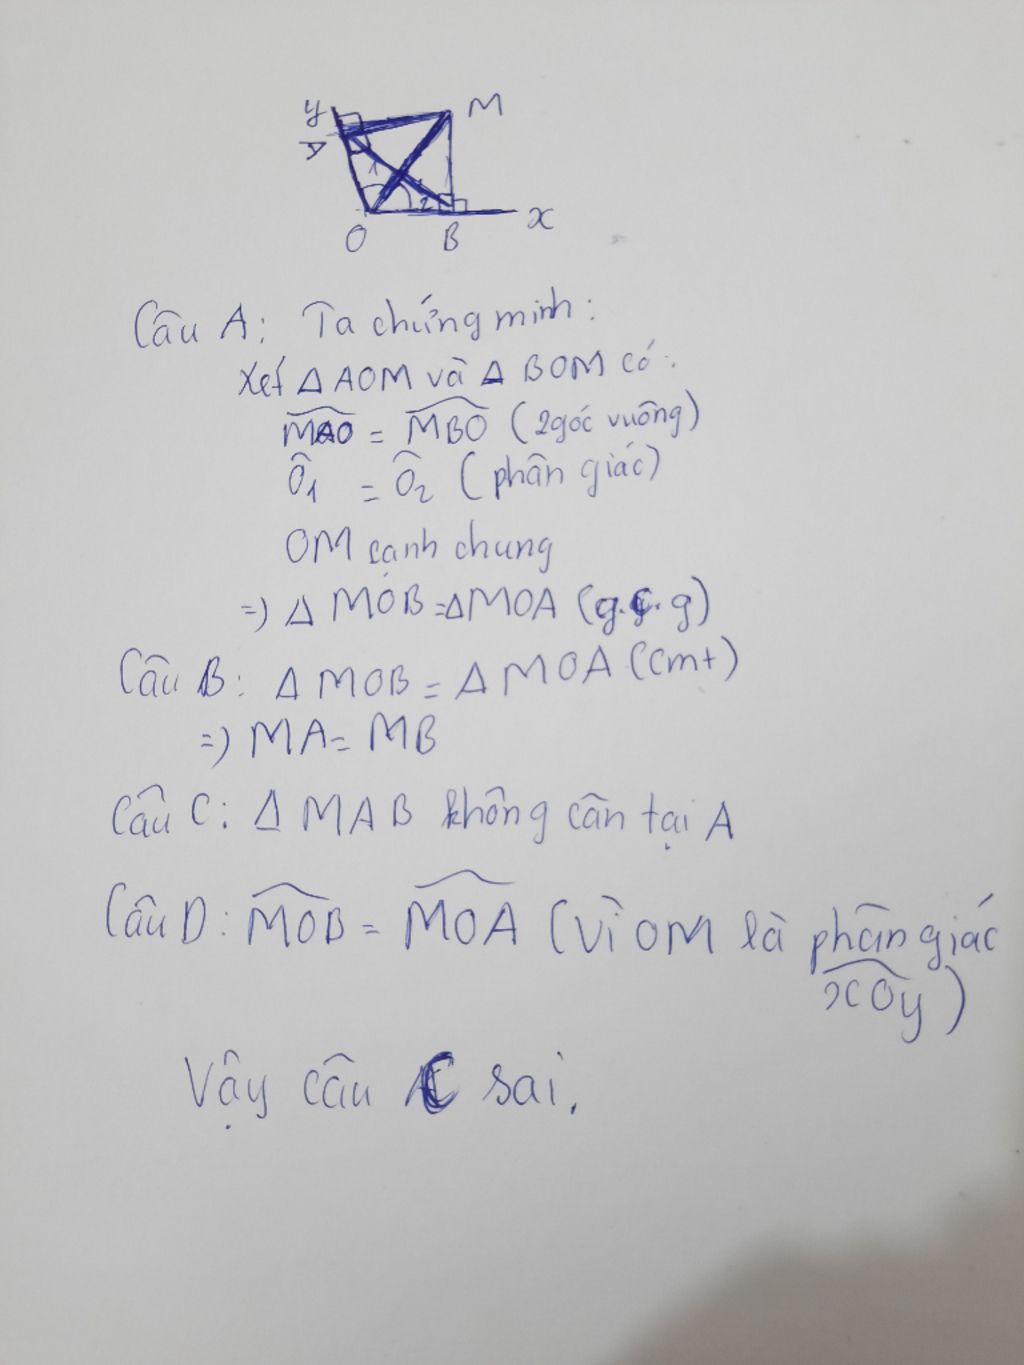 y M
A
1 2
O B x
Câu A: Ta chứng minh:
Xét Δ AOM và Δ BOM có:
MAO = MBO (2 góc vuông)
Ô1 = Ô2 (phân giác)
OM cạnh chung
=) Δ MOB = Δ MOA (g.c.g)
Câu B: Δ MOB = Δ MOA (cmt)
=) MA = MB
Câu C: Δ MAB không cân tại A
Câu D: MOB = MOA (vì OM là phân giác
xOy)
Vậy câu C sai.